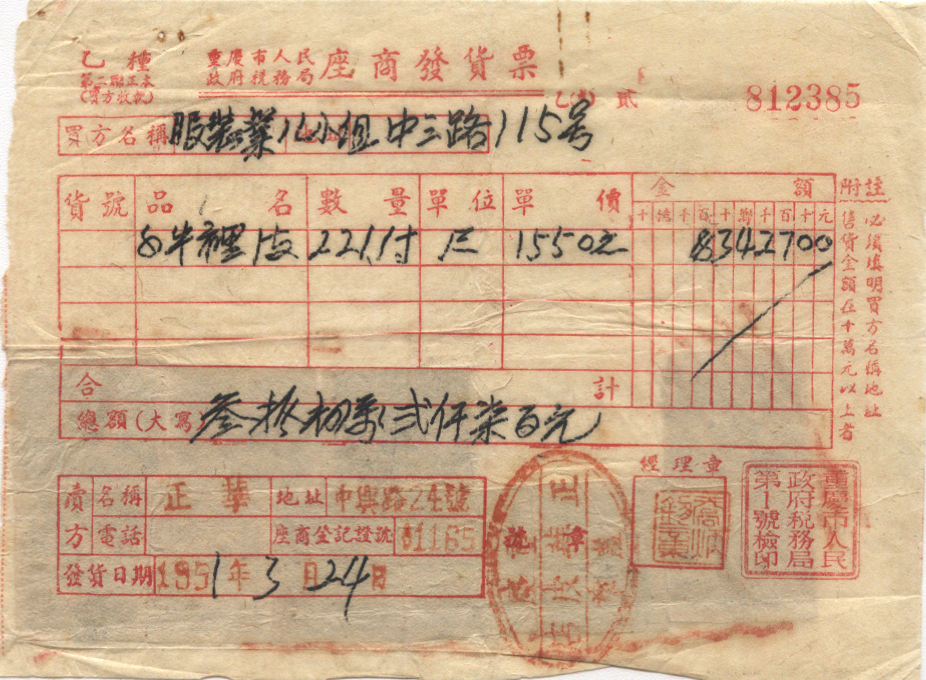 乙種
第二聯正本
(買方收執)
重慶市人民
政府稅務局
座商發貨票
乙(座) 貳
812385
買方名稱 服裝業小組 中三路115号
貨號 品名 數量 單位 單價 金額 附註
十億千百十萬千百十元
221付 1550元 342700
必須填明買方名稱地址
售貨金額在十萬元以上者
合計
總額(大寫 叁拾 萬 弍仟柒百元
賣方 名稱 正華 地址 中興路24號
電話 座商登記證號 01165
發貨日期 1951年3月24日
經理章
重慶市人民
政府稅務局
第1號檢印